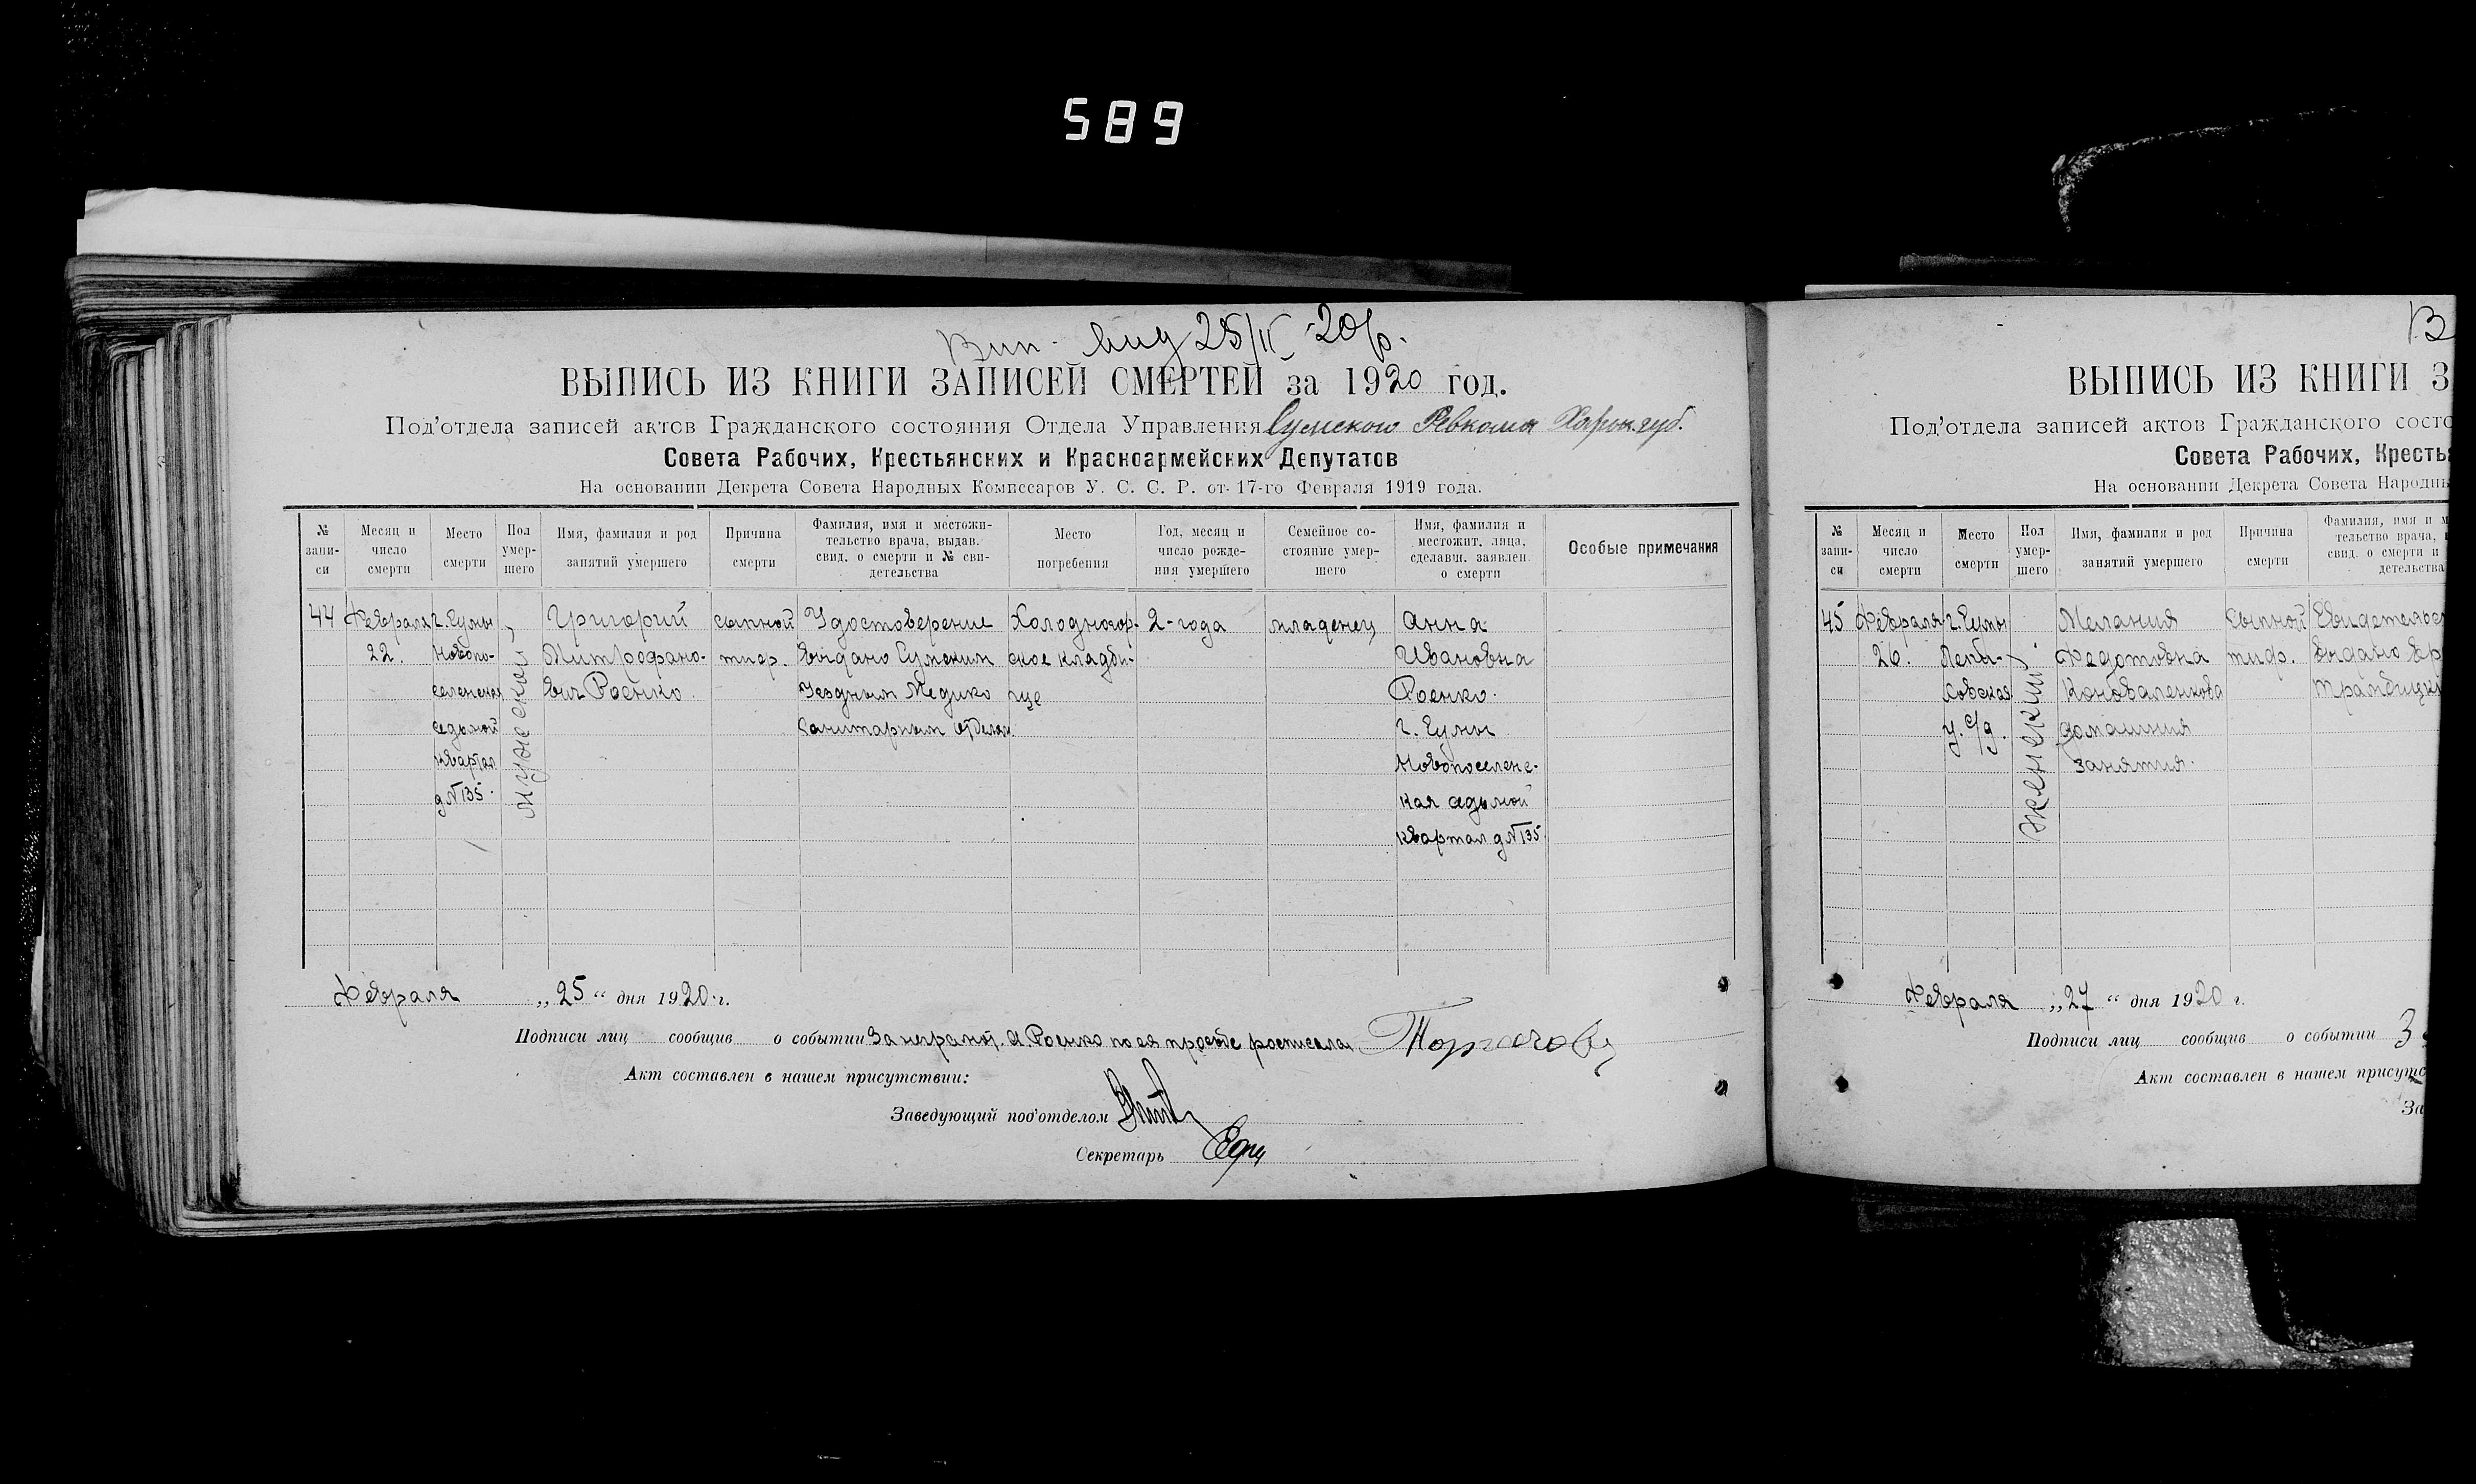 589
Вип. вид 25/II-20 р.
ВЫПИСЬ ИЗ КНИГИ ЗАПИСЕЙ СМЕРТЕЙ за 1920 год.
Под'отдела записей актов Гражданского состояния Отдела Управления Сумского Ревкома Харьк. губ.
Совета Рабочих, Крестьянских и Красноармейских Депутатов
На основании Декрета Совета Народных Комиссаров У. С. С. Р. от 17-го Февраля 1919 года.
№ запи-си
Месяц и число смерти
Место смерти
Пол умер-шего
Имя, фамилия и род занятий умершего
Причина смерти
Фамилия, имя и местожи-тельство врача, выдав. свид. о смерти и № сви-детельства
Место погребения
Год, месяц и число рожде-ния умершего
Семейное со-стояние умер-шего
Имя, фамилия и местожит. лица, сделавш. заявлен. о смерти
Особые примечания
44
Февраля
22.
г. Сумы
Новопо-
селенская
седьмой
квартал
д № 135.
Мужской
Григорий
Митрофано-
вич Роенко.
сыпной
тиф.
Удостоверение
выдано Сумским
Уездным Медико
Санитарным отделом
Холодногор-
ское кладби-
ще
2-года
младенец
Анна
Ивановна
Роенко.
г. Сумы
Новопоселенс-
кая седьмой
квартал д № 135.
Февраля „25“ дня 1920 г.
Подписи лиц сообщив о событии За неграмот. А. Роенко по ея просьбе
Акт составлен в нашем присутствии:
Заведующий под'отделом
Секретарь
В
ВЫПИСЬ ИЗ КНИГИ З
Под'отдела записей актов Гражданского состо
Совета Рабочих, Кресть
На основании Декрета Совета Народны
№ запи-си
Месяц и число смерти
Место смерти
Пол умер-шего
Имя, фамилия и род занятий умершего
Причина смерти
Фамилия, имя и м
тельство врача,
свид. о смерти и
детельства
45
Февраля
26.
г. Сумы
у. с/д.
Женский
Мелания
Федотовна
Коноваленкова
домашния
занятия.
Сыпной
тиф.
Свидетельст
выдано вр
Февраля „27“ дня 1920 г.
Подписи лиц сообщив о событии З
Акт составлен в нашем присутс
За